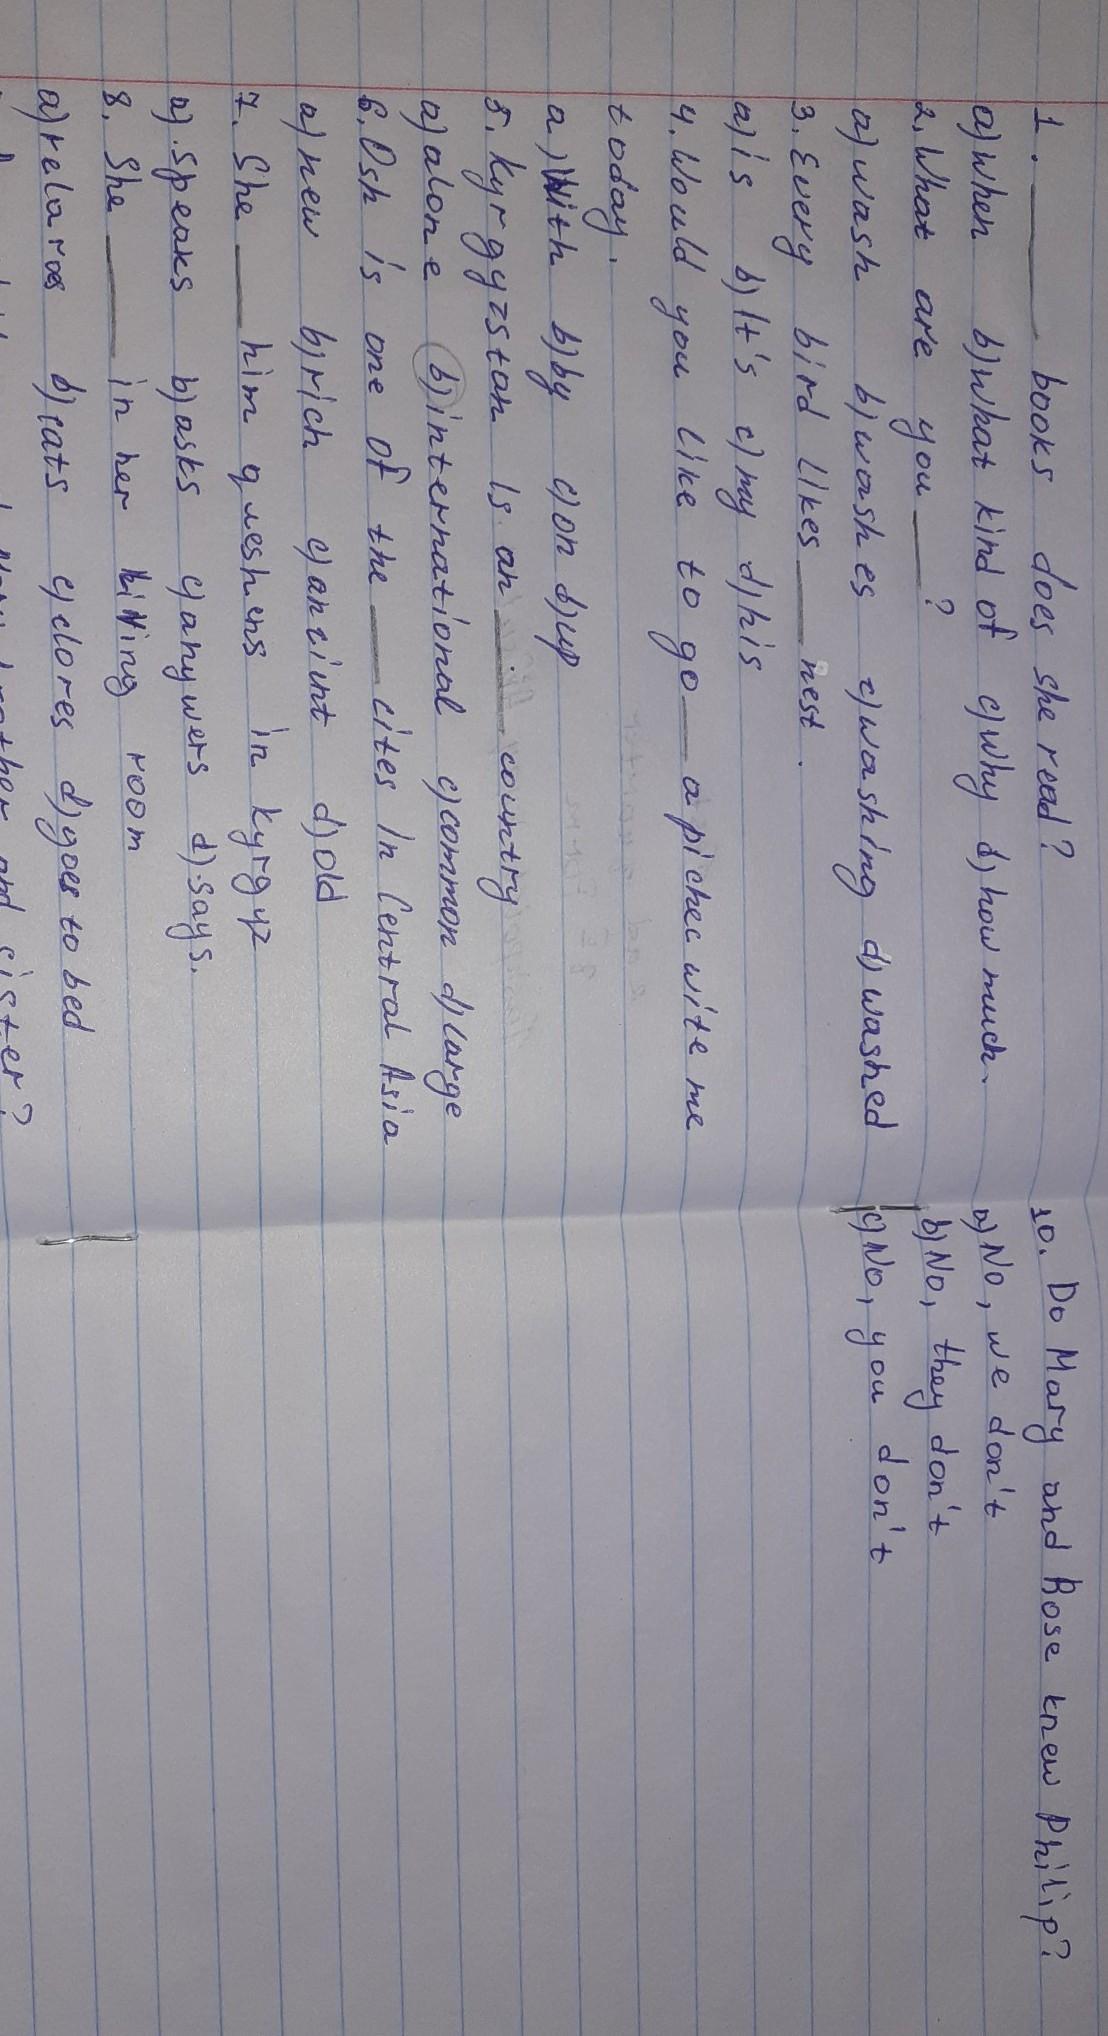 1. ____ books does she read?
a) when b) what kind of c) why d) how much.
2. What are you ____?
a) wash b) washes c) washing d) washed
3. Every bird likes ____ nest.
a) is b) It's c) my d) his
4. Would you like to go ____ a pichec wite me
today.
a) With b) by c) on d) up
5. Kyrgyzstan is an ____ country
a) alone b) international c) common d) large
6. Osh is one of the ____ cites in Central Asia
a) new b) rich c) anciunt d) old
7. She ____ him queshens in kyrgyz
a). speaks b) asks c) anywers d) says.
8. She ____ in her liNing room
a) relaxes b) eats c) clores d) goes to bed
brother and sister?
10. Do Mary and Rose knew Philip?
a) No, we don't
b) No, they don't
c) No, you don't